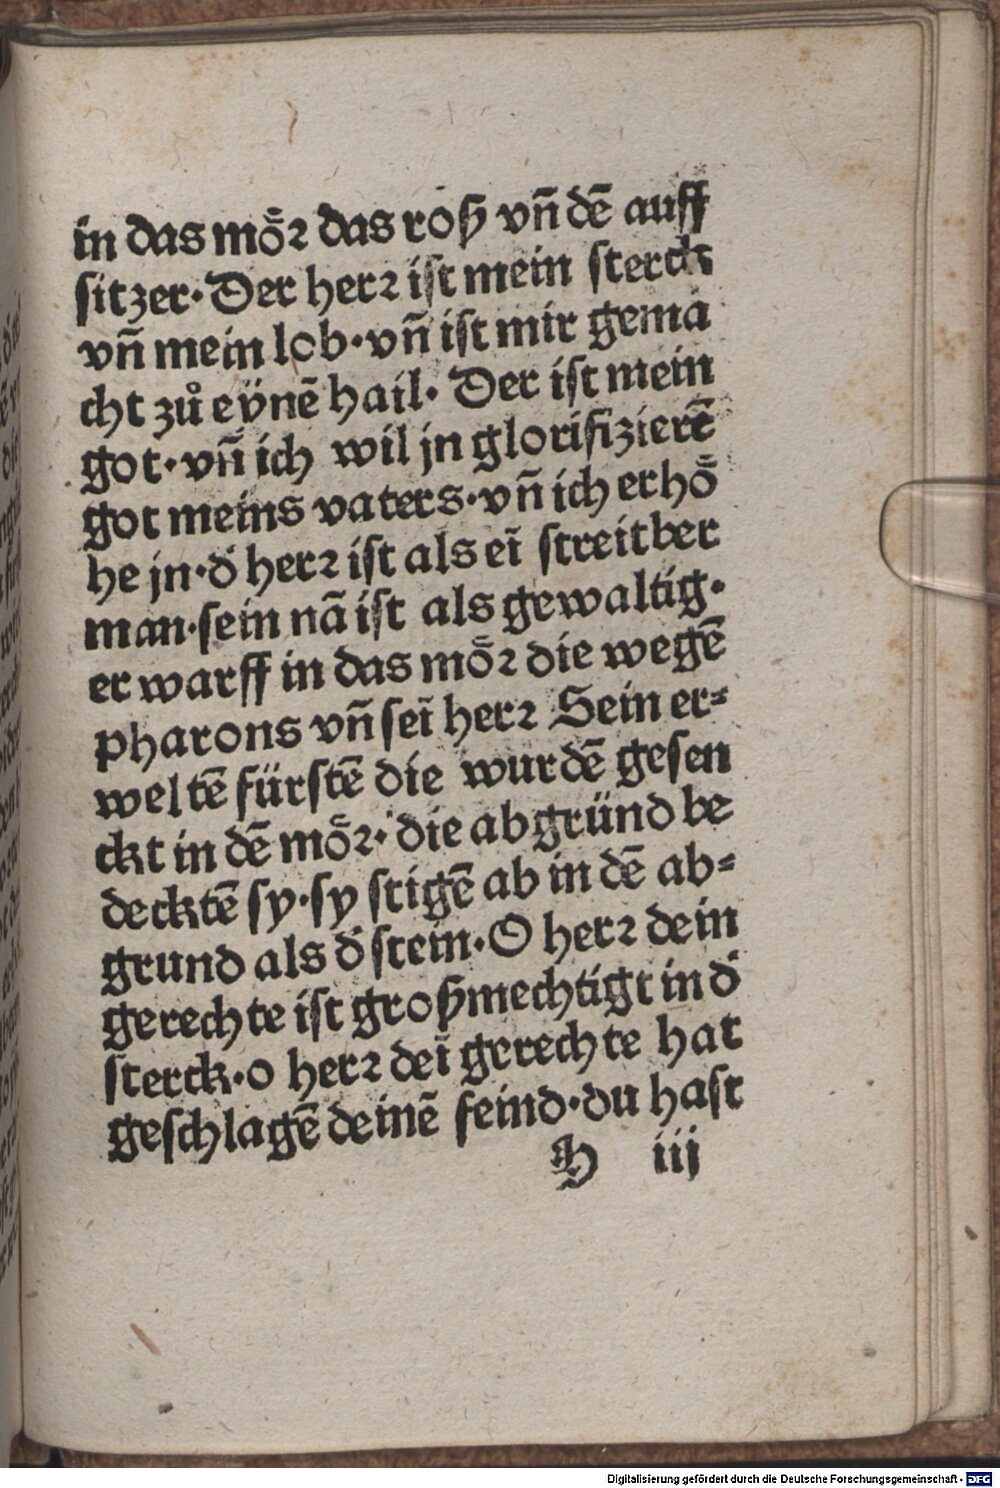 in das moͤr das roß vñ dē auff
sitzer·Der herr ist mein sterck
vñ mein lob·vñ ist mir gema
cht zuͦ eynē hail· Der ist mein
got·vñ ich wil jn glorifizierē
got meins vaters·vñ ich erhoͤ
he jn·d̓ herr ist als eī streitber
man·sein nā ist als gewaltig·
er warff in das moͤr die wegē
pharons vñ seī herr Sein er⸗
weltē fürstē die wurdē gesen
ckt in dē moͤr·die abgründ be
decktē sy·sy stigē ab in dē ab⸗
grund als d̓ stein·O herr dein
gerechte ist großmechtigt in d̓
sterck·o herr deī gerechte hat
geschlagē deinē feind·du hast
H iii
Digitalisierung gefördert durch die Deutsche Forschungsgemeinschaft - DFG